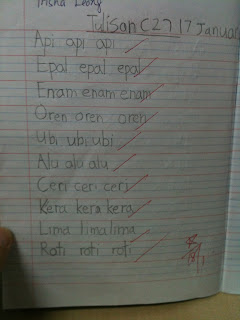 Trisha Leong
Tulisan C27 17 Januari
Api api api
Epal epal epal
Enam enam enam
Oren oren oren
Ubi ubi ubi
Alu alu alu
Ceri ceri ceri
Kera kera kera
Lima lima lima
Roti roti roti